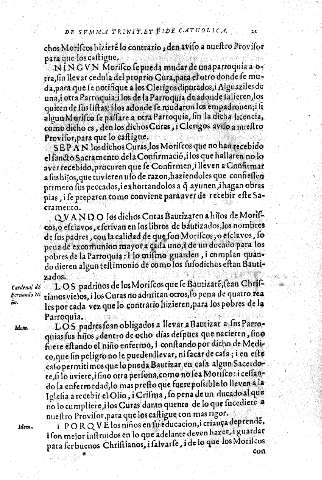 DE SVMMA TRINIT. ET FIDE CATHOLICA. 21
chos Moriscos hizierē lo contrario, den aviso a nuestro Provisor
para que los castigue.
NINGVN Morisco se pueda mudar de una parroquia a o-
tra, sin llevar cedula del proprio Cura, para el otro donde se mu-
da, para que se notifique a los Clerigos diputados, i Alguaziles de
una, i otra Parroquia: i los de la Parroquia de adonde salieren, los
quiten de sus listas: i los adonde se mudaron los empadronen: i si
algun Morisco se passare a otra Parroquia, sin la dicha licencia,
como dicho es, den los dichos Curas, i Clerigos aviso a nuestro
Provisor, para que lo castigue.
SEPAN los dichos Curas, los Moriscos que no han recebido
el sancto Sacramento de la Confirmació, i los que hallaren no lo
aver recebido, procuren que se Confirmen, i lleven a Confirmar
a sus hijos, que tuvieren uso de razon, haziendoles que confiessen
primero sus peccados, i exhortandolos a q̃ ayunen, i hagan obras
pias, i se preparen como conviene para aver de recebir este Sa-
cramento.
QVANDO los dichos Curas Bautizaren a hijos de Moris-
cos, o esclavos, escrivan en los libros de bautizados, los nombres
de sus padres, con la calidad de que son Moriscos, o esclavos, so
pena de excomunion mayor a cada uno, i de un ducado para los
pobres de la Parroquia: i lo mismo guarden, i cumplan quan-
do dieren algun testimonio de como los susodichos estan Bauti-
zados.
Cardenal dō
Fernando Ni
ño.
LOS padrinos de los Moriscos que se Bautizarē, sean Chris-
tianos viejos, i los Curas no admitan otros, so pena de quatro rea
les por cada vez que lo contrario hizieren, para los pobres de la
Parroquia.
Idem.
LOS padres sean obligados a llevar a Bautizar a sus Parro-
quias sus hijos, dentro de ocho dias despues que nacieren, sino
fuere estando el niño enfermo, i constando por dicho de Medi-
co, que sin peligro no le pueden llevar, ni sacar de casa; i en este
caso permitimos que lo pueda Bautizar, en casa algun Sacerdo-
te, si lo uviere, i sino otra persona, como no sea Morisco: i cessan-
do la enfermedad, lo mas presto que fuere possible lo lleven a la
Iglesia a recebir el Olio, i Crisma, so pena de un ducado al que
no lo cumpliere, i los Curas daran quenta de lo que sucediere a
nuestro Provisor, para que los castigue con mas rigor.
Idem.
i PORQVE los niños en su educacion, i criança deprendē,
i son mejor instruidos en lo que adelante deven hazer, i guardar
para ser buenos Christianos, i salvarse, i de lo que los Moriscos
con